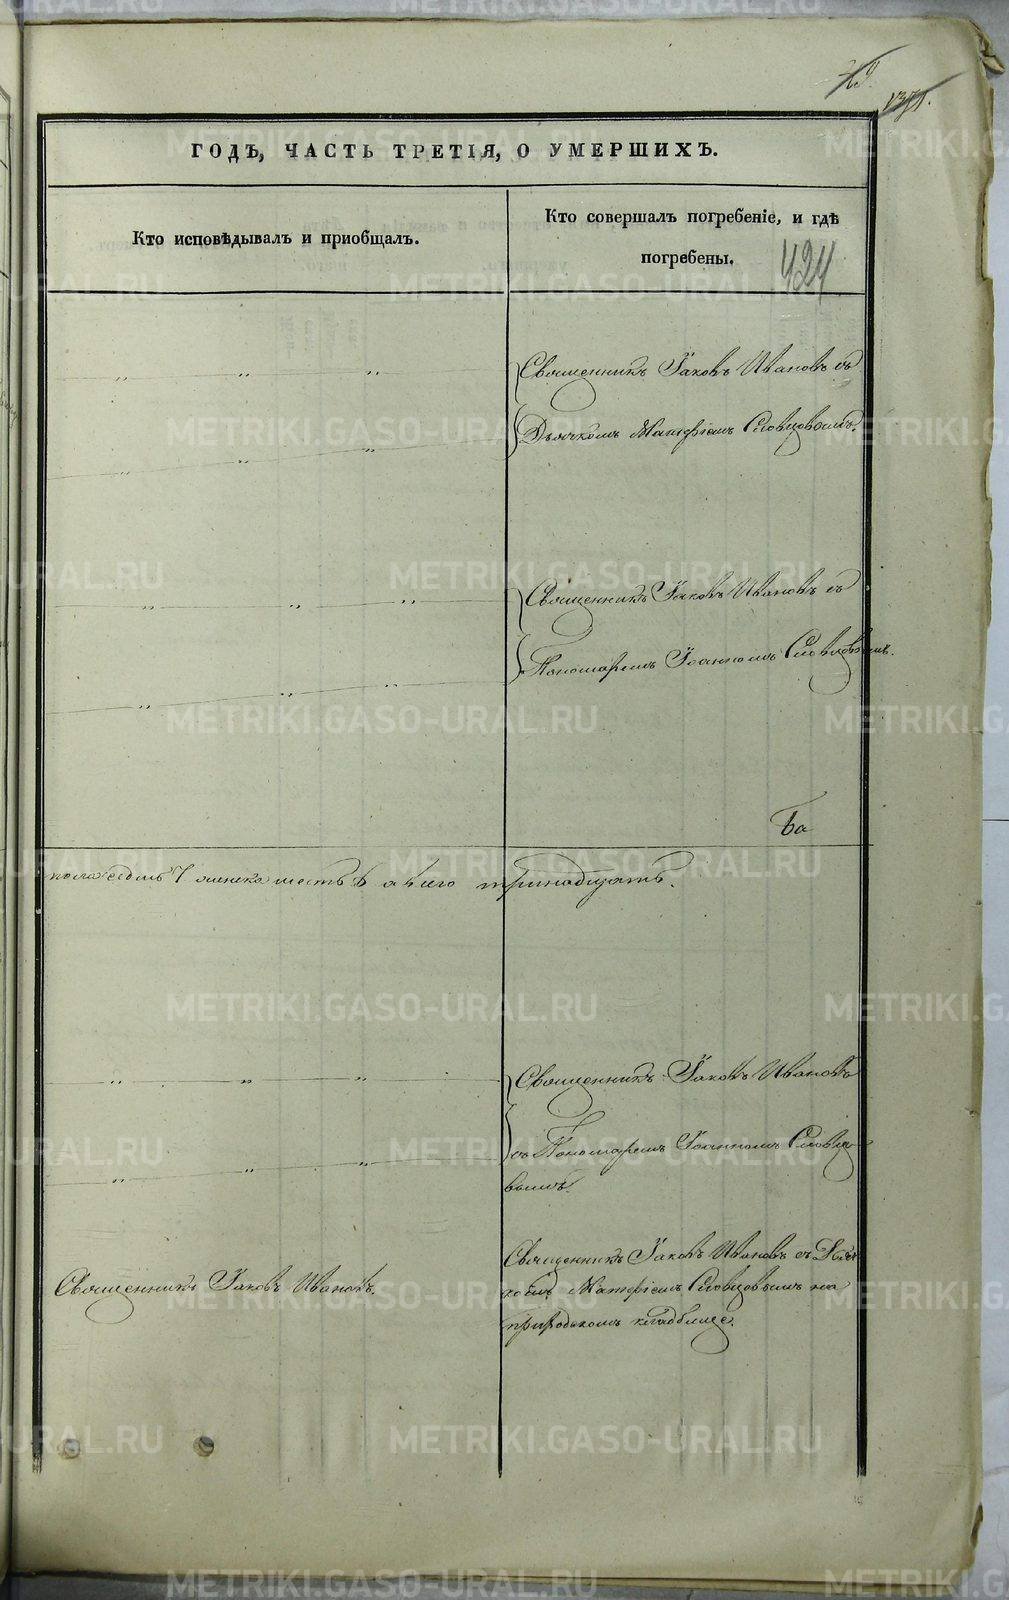 1371.
ГОДЪ, ЧАСТЬ ТРЕТІЯ, О УМЕРШИХЪ.
Кто исповѣдывалъ и пріобщалъ.
Кто совершалъ погребеніе, и гдѣ
погребены.
424
„ „ „
Священникъ Іаковъ Ивановъ съ
Дьячкомъ Матѳіемъ Словцовымъ.
„ „ „
„ „ „
Священникъ Іаковъ Ивановъ съ
Пономаремъ Іоанномъ Словцовымъ.
„ „ „
пола седмь 7 женска шесть 6 а всего тринадцать.
„ „ „
Священникъ Іаковъ Ивановъ
съ Пономаремъ Іоанномъ Словцо-
вымъ.
„ „ „
Священникъ Іаковъ Ивановъ.
Священникъ Іаковъ Ивановъ съ Дьяч
комъ Матѳіемъ Словцовымъ на
приходскомъ кладбище.
METRIKI.GASO-URAL.RU